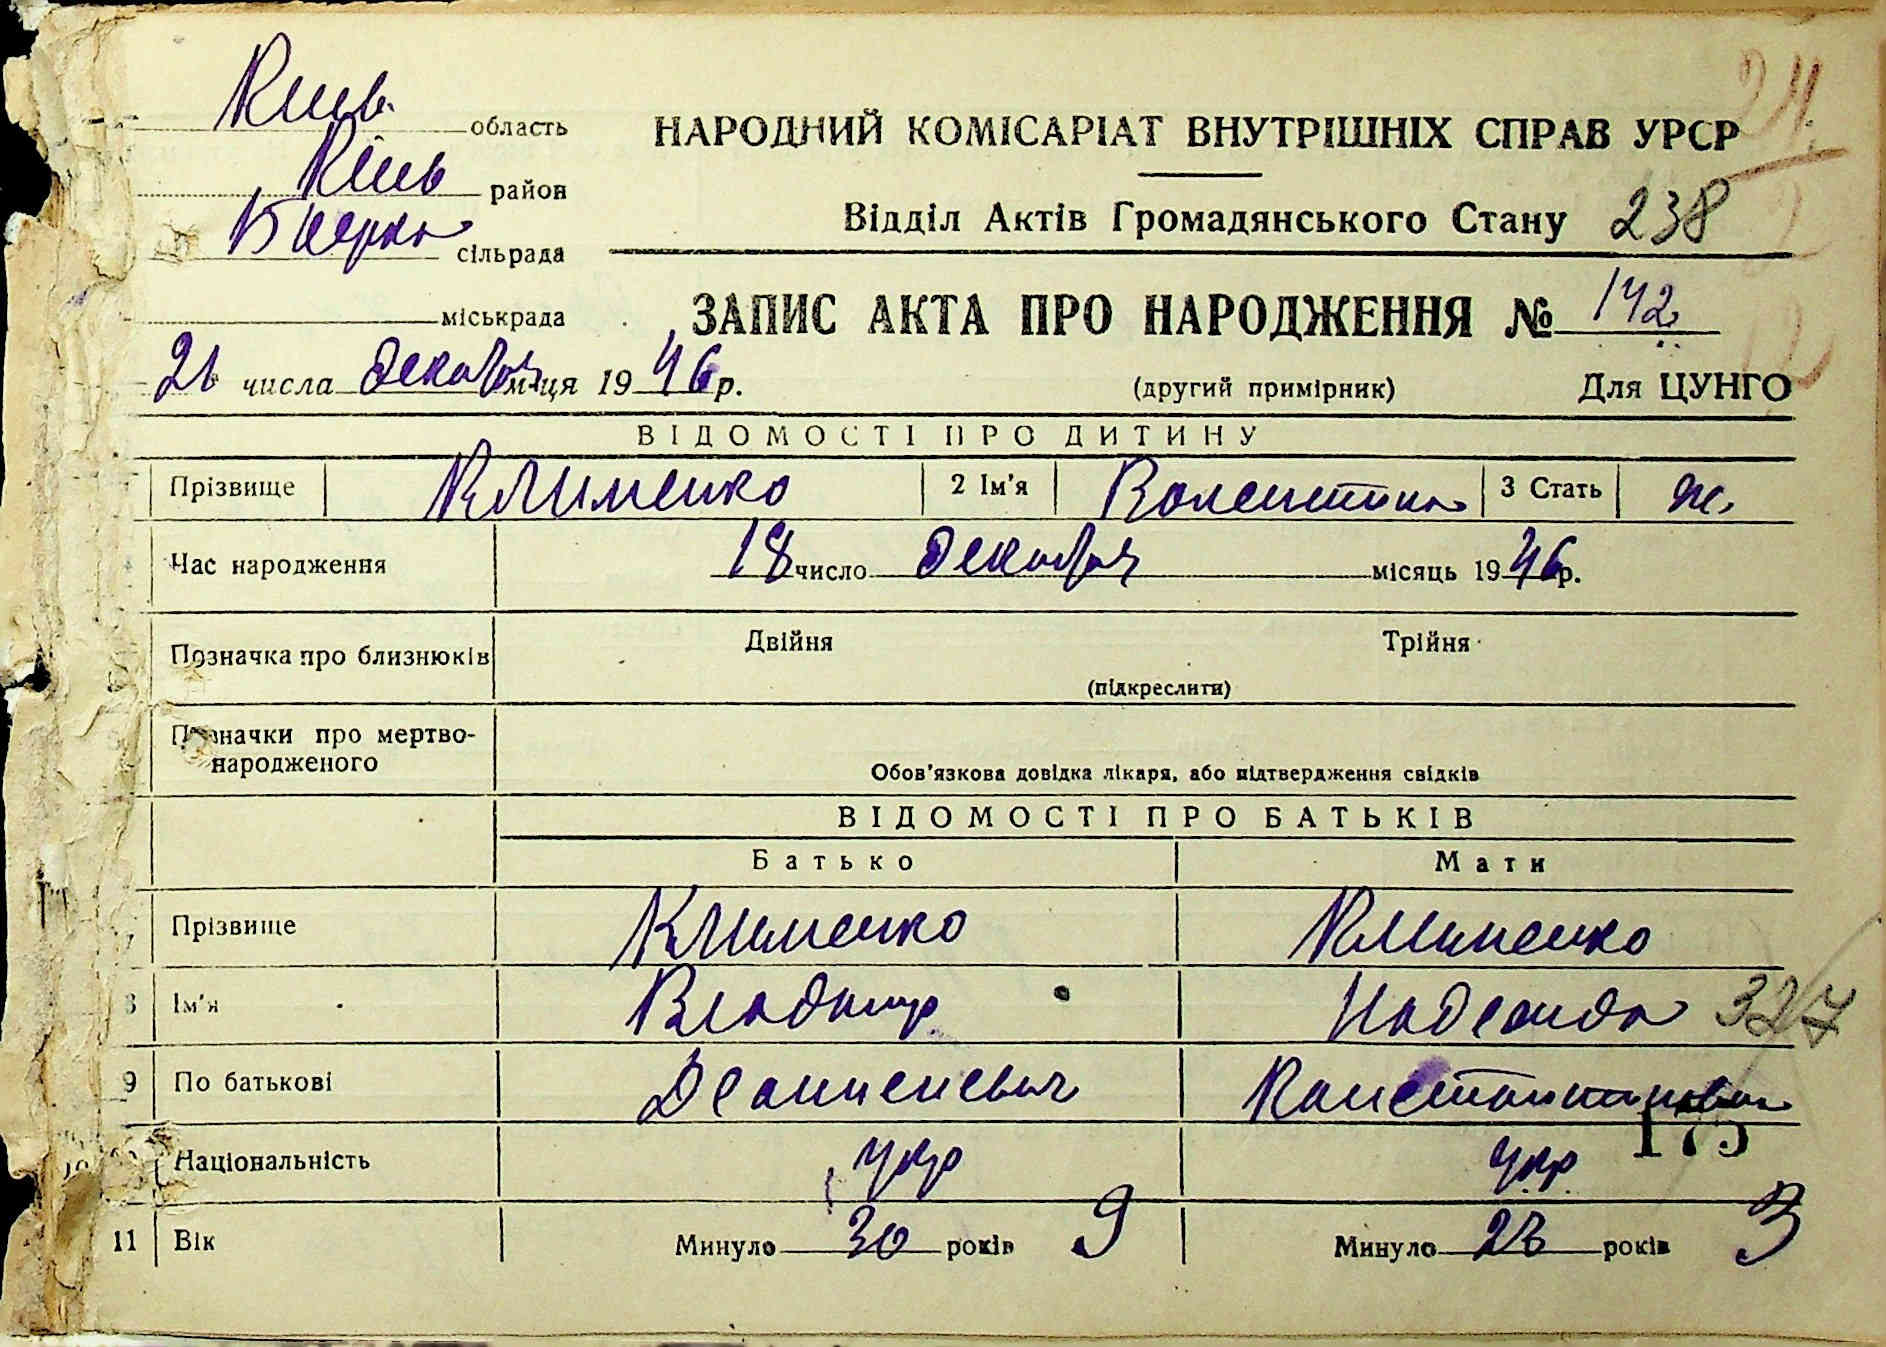 Киев область
Киев район
сільрада
міськрада
НАРОДНИЙ КОМІСАРІАТ ВНУТРІШНІХ СПРАВ УРСР
Відділ Актів Громадянського Стану 238
ЗАПИС АКТА ПРО НАРОДЖЕННЯ № 142
числа декабря м-ця 1946 р.
(другий примірник) Для ЦУНГО
ВІДОМОСТІ ПРО ДИТИНУ
Прізвище Клименко 2 Ім'я Валентина 3 Стать ж.
Час народження 18 число декабря місяць 1946 р.
Позначка про близнюків Двійня Трійня
(підкреслити)
Позначки про мертво-
народженого
Обов'язкова довідка лікаря, або підтвердження свідків
ВІДОМОСТІ ПРО БАТЬКІВ
Батько Мати
7 Прізвище Клименко Клименко
8 Ім'я Владимир Надежда 327
9 По батькові Константиновна
175
Національність укр укр
11 Вік Минуло 30 років 9 Минуло 23 років 3